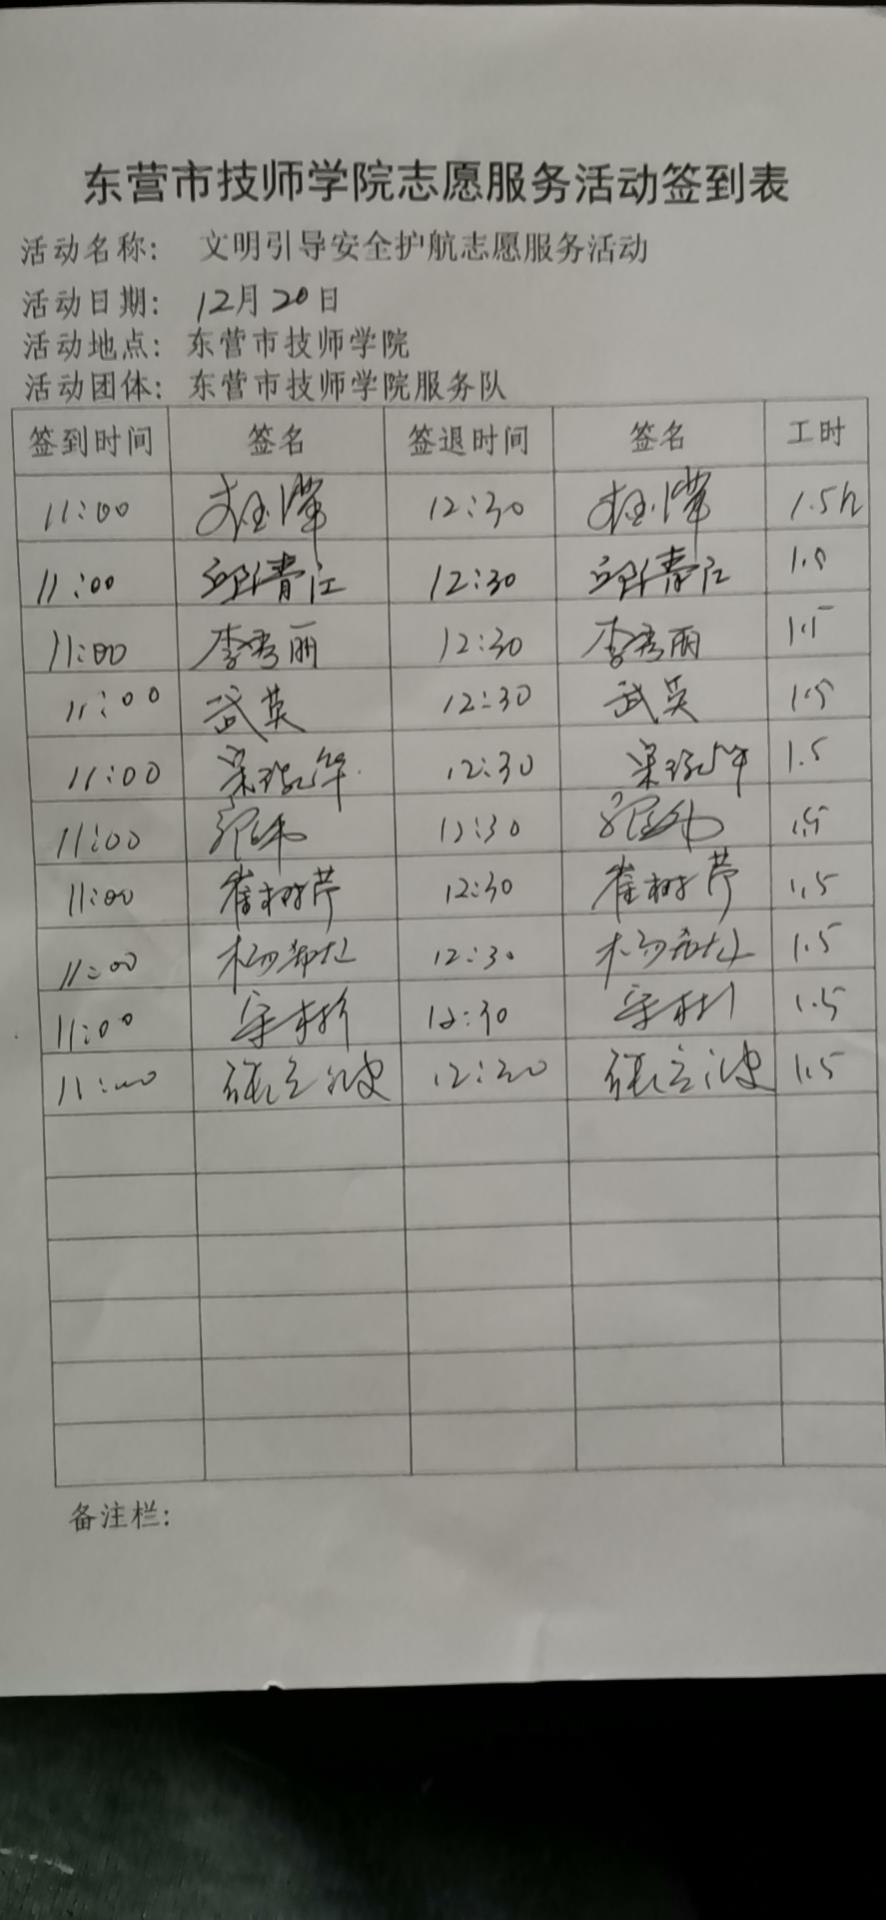 东营市技师学院志愿服务活动签到表
活动名称: 文明引导安全护航志愿服务活动
活动日期: 12月20日
活动地点: 东营市技师学院
活动团体: 东营市技师学院服务队
签到时间 签名 签退时间 签名 工时
11:00 12:30 1.5h
11:00 邱青江 12:30 邱青江 1.5
11:00 李秀丽 12:30 李秀丽 1.5
11:00 武英 12:30 武英 1.5
11:00 12:30 1.5
11:00 12:30 1.5
11:00 崔树芹 12:30 崔树芹 1.5
11:00 12:30 1.5
11:00 12:30 1.5
11:00 张立波 12:30 张立波 1.5
备注栏: